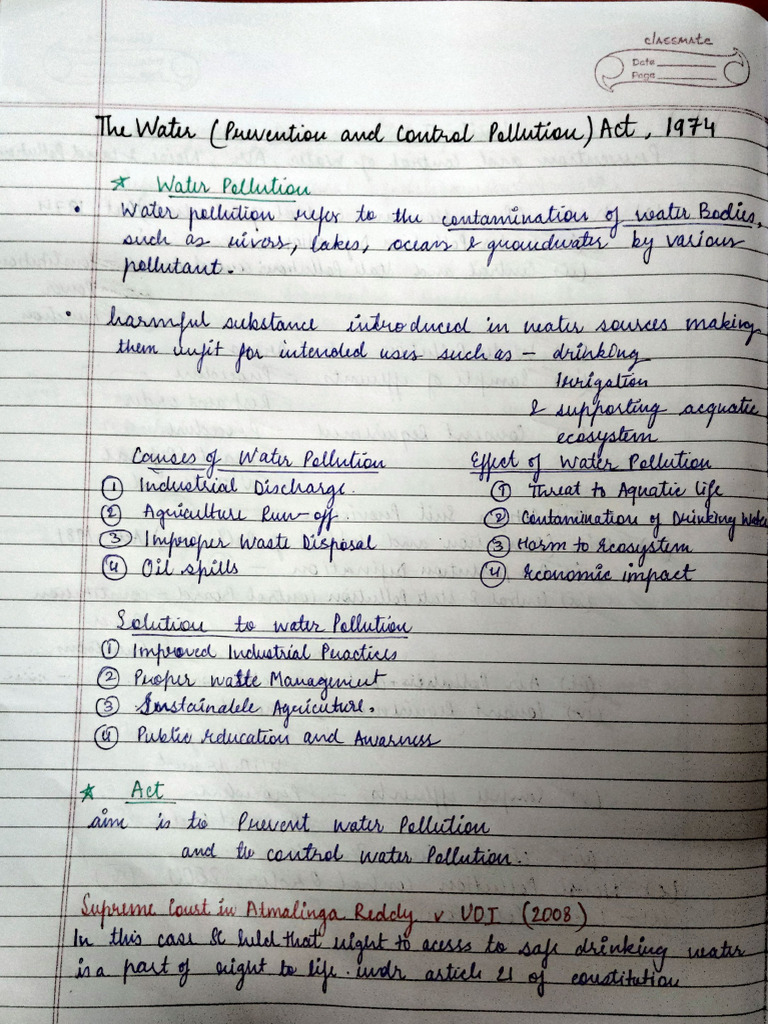 classmate
Date
Page
The Water (Prevention and Control Pollution) Act, 1974
* Water Pollution
• Water pollution refer to the contamination of water Bodies,
such as rivers, lakes, ocean & groundwater by various
pollutant.
• harmful substance introduced in water sources making
them unfit for intended uses such as – drinking
Irrigation
& supporting acquatic
ecosystem
Causes of Water Pollution
① Industrial Discharge.
② Agriculture Run-off.
③ Improper Waste Disposal
④ Oil spills
Effect of Water Pollution
① Threat to Aquatic life
② Contamination of Drinking Water
③ Harm to Ecosystem
④ Economic impact
Solution to water Pollution
① Improved Industrial Practices
② Proper waste Management
③ Sustainable Agricuture.
④ Public education and Awarness
* Act
aim is to Prevent water Pollution
and to control water Pollution.
Supreme Court in Atmalinga Reddy v UOI (2008)
In this case SC held that right to acess to safe drinking water
is a part of right to life. undr article 21 of constitution